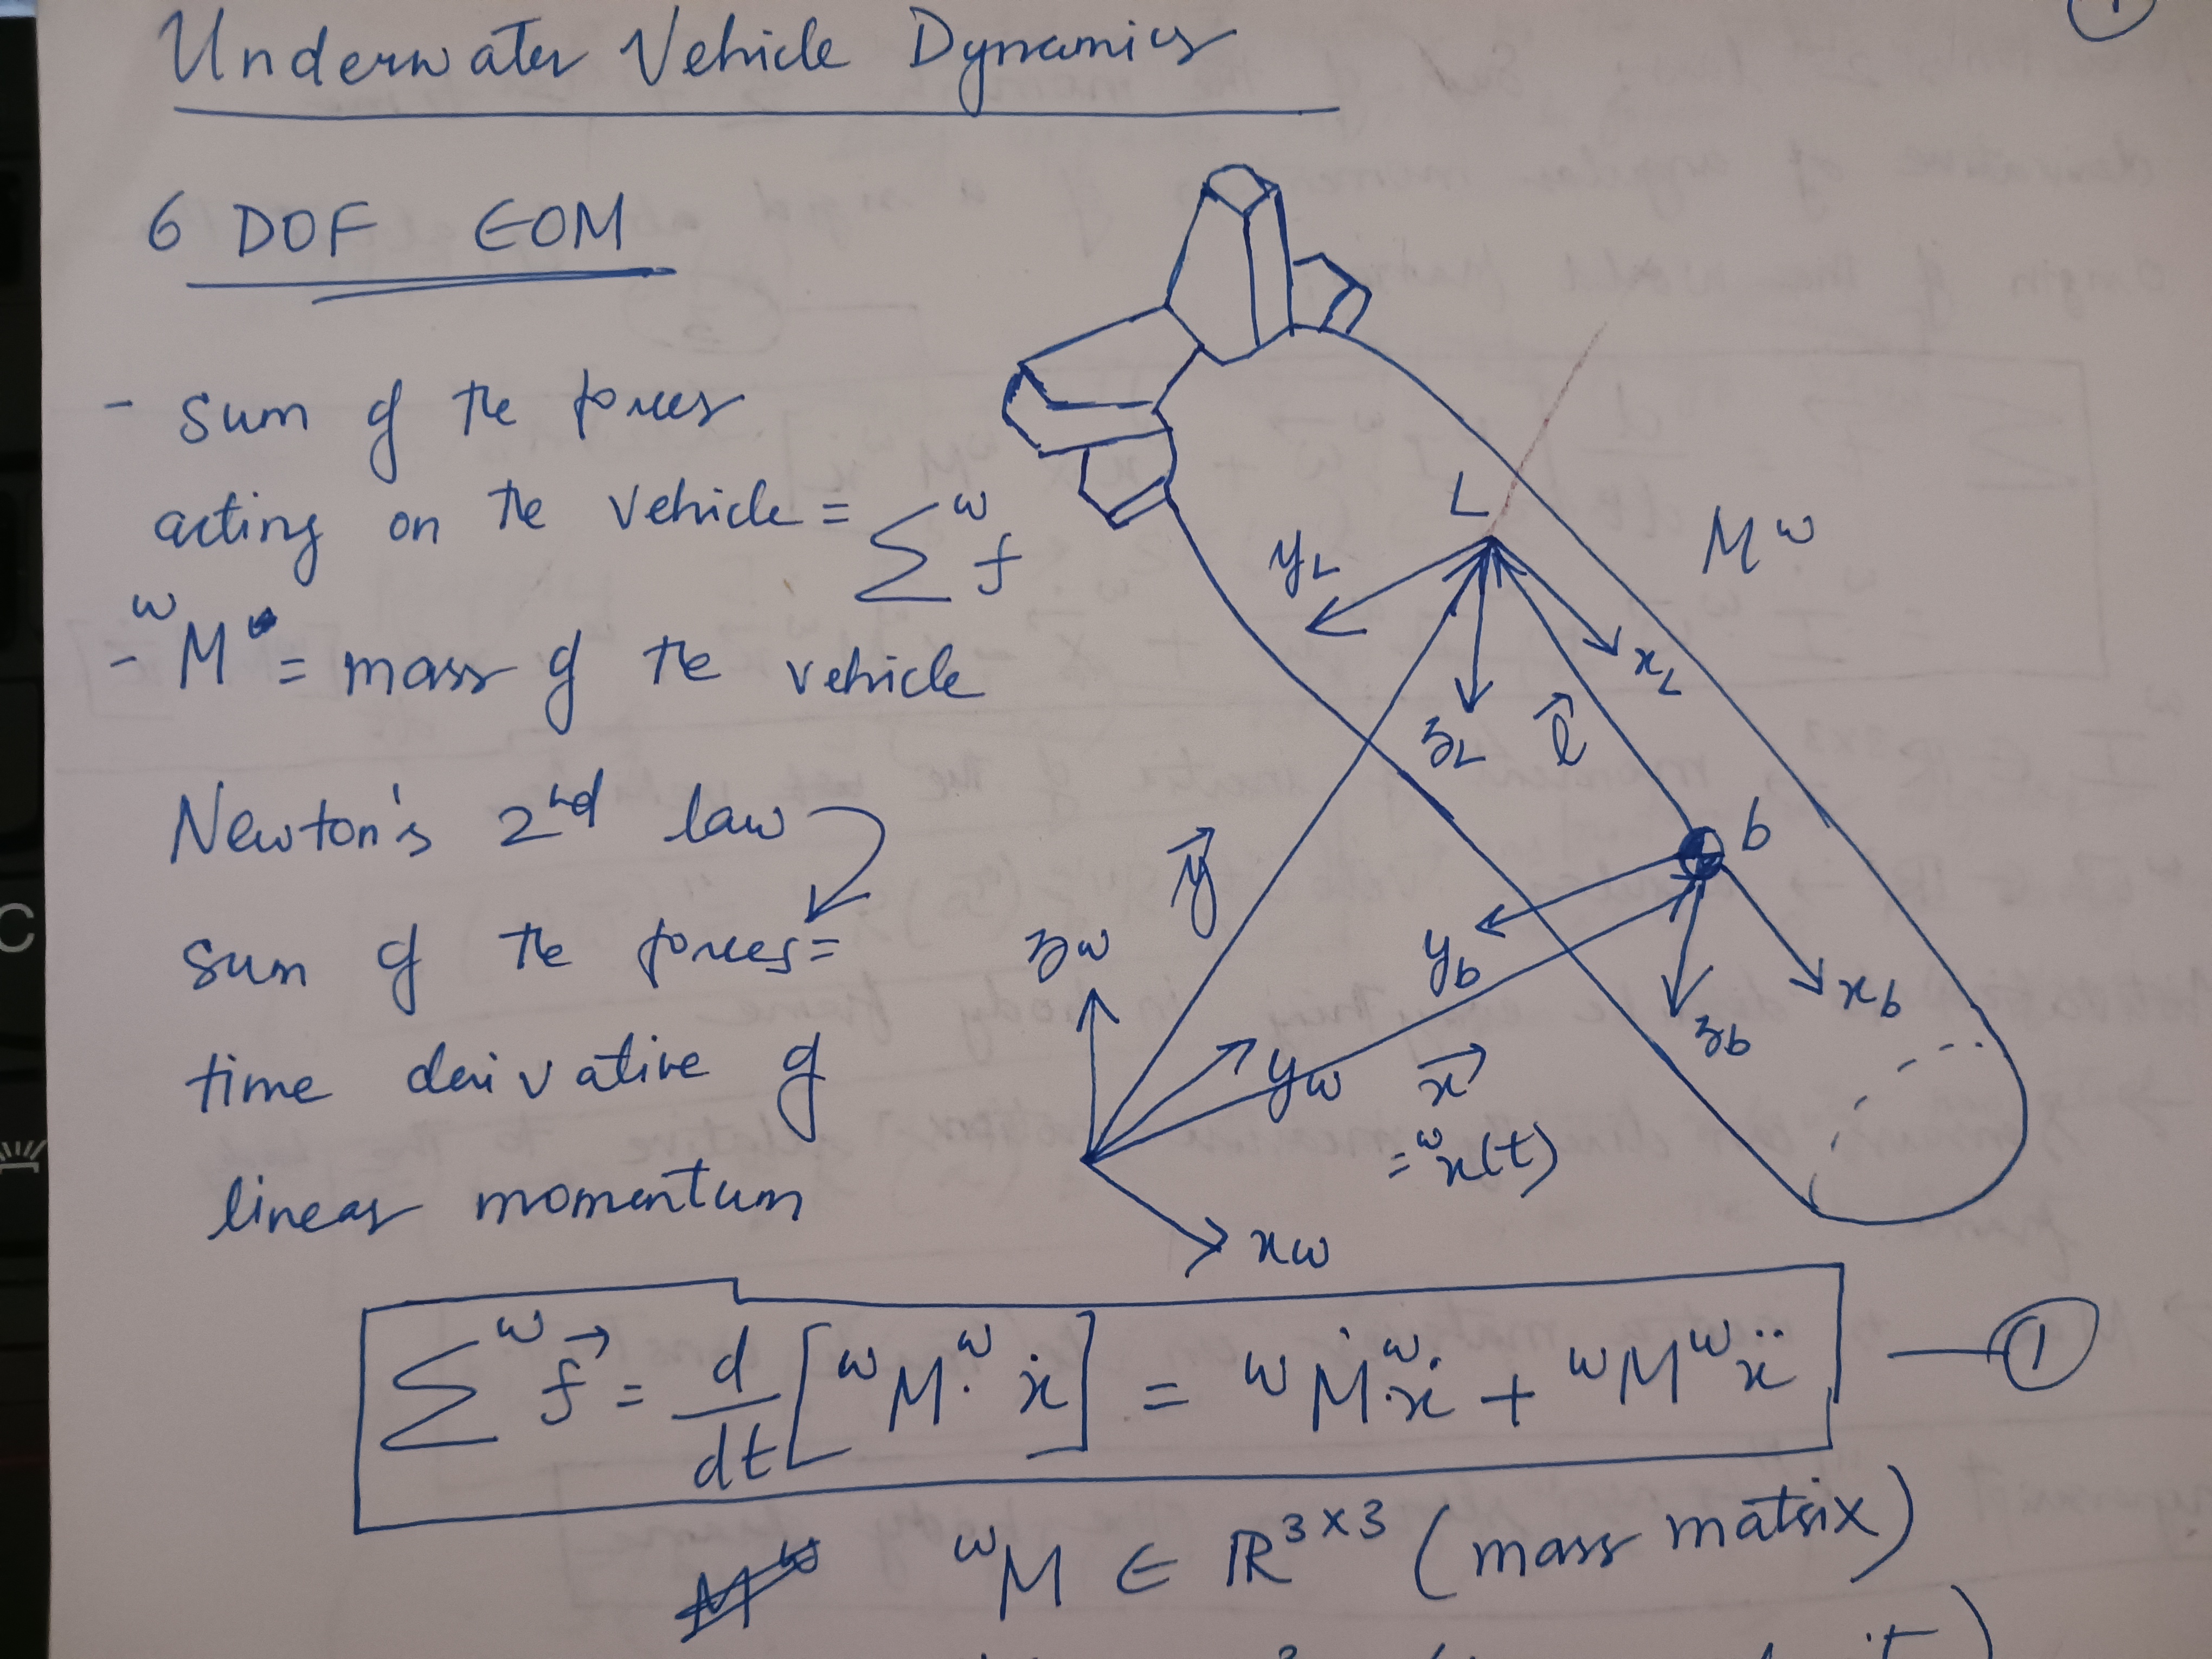 Underwater Vehicle Dynamics
6 DOF EOM
- sum of the forces
acting on the vehicle = Σ ʷf
- ʷM = mass of the vehicle
Newton's 2nd law
sum of the forces =
time derivative of
linear momentum
L
Mʷ
y_L
x_L
z_L
l⃗
b
y⃗
y_b
x_b
z_b
z_w
y_w
x⃗
= ʷx(t)
x_w
Σ ʷf⃗ = d/dt [ʷM · ʷẋ] = ʷṀ · ʷẋ + ʷM ʷẍ — ①
ʷM ∈ ℝ³ˣ³ (mass matrix)